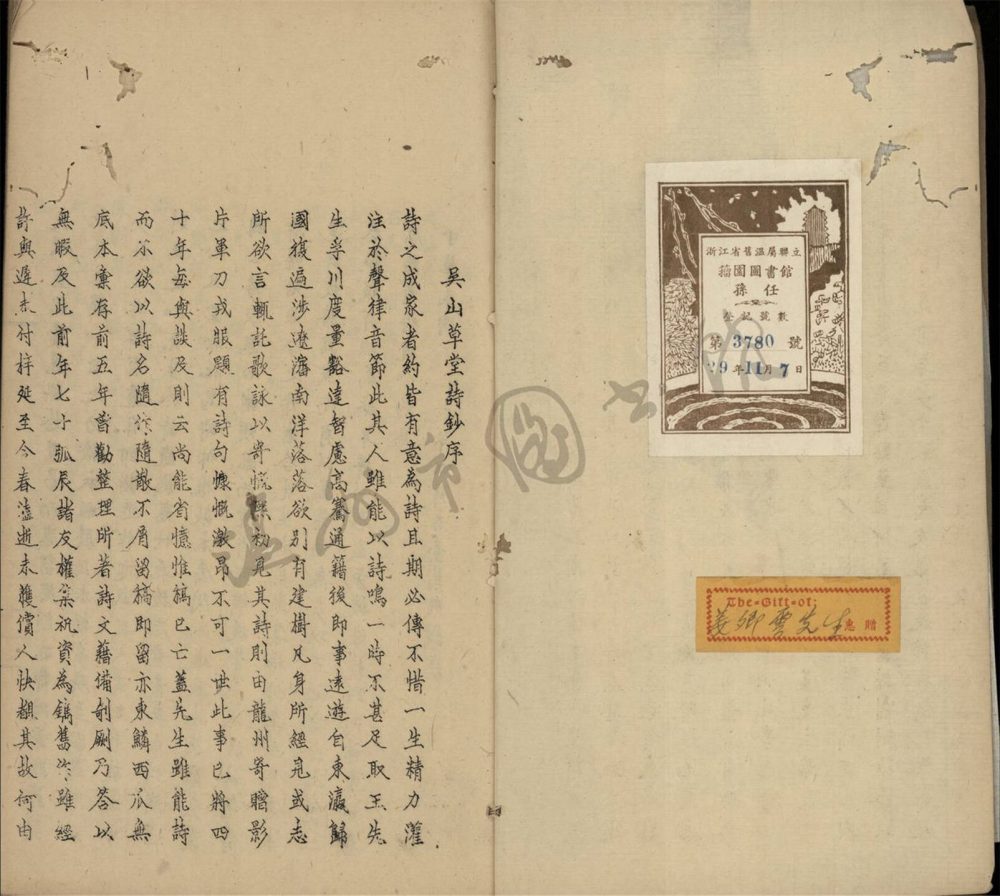 浙江省舊溫屬聯立
籀園圖書館
孫任
登記號數
第3780號
29年11月7日
The=Gift=of:
姜卿雲先生惠贈
吳山草堂詩鈔序
詩之成家者約皆有意為詩且期必傳不惜一生精力灌
注於聲律音節此其人雖能以詩鳴一時不甚足取王先
生孚川度量豁達智慮高騫通籍後即事遠遊自東瀛歸
國復遍涉遼瀋南洋落落欲別有建樹凡身所經見或志
所欲言輒託歌詠以寄慨櫟初見其詩則由龍州寄贈影
片軍刀戎服題有詩句慷慨激昂不可一世此事已將四
十年每與談及則云尚能省憶惟稿已亡蓋先生雖能詩
而不欲以詩名隨作隨散不屑留稿即留亦東鱗西爪無
底本彙存前五年嘗勸整理所著詩文藉備剞劂乃答以
無暇及此前年七十弧辰諸友權集祝資為鐫舊作雖經
許與遲未付梓延至今春溘逝未獲償人快覩其故何由
溫州市圖書館